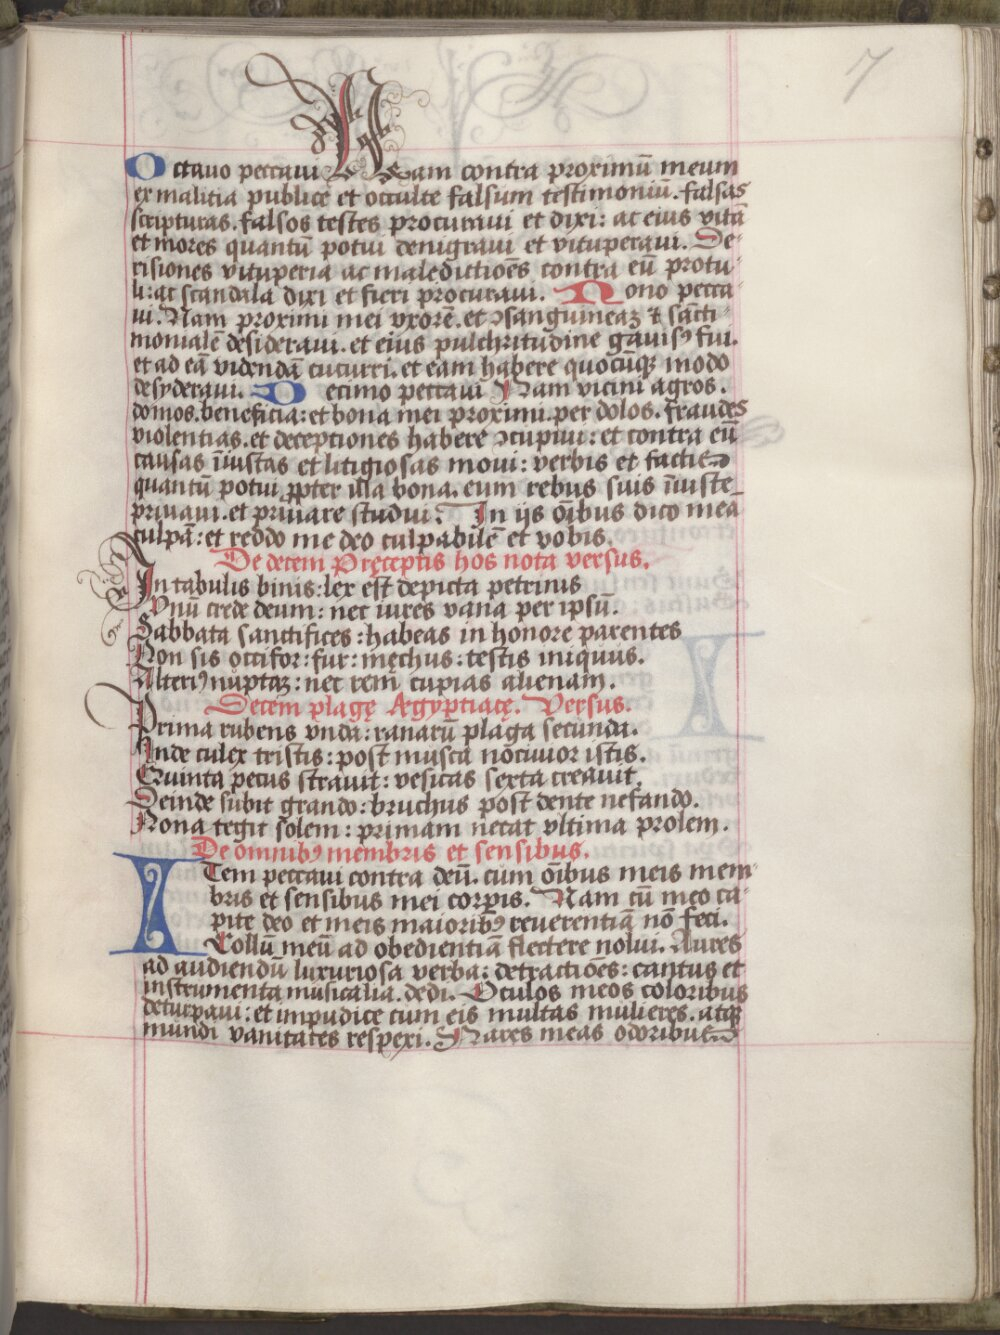 7
Octavo peccavi Nam contra proximū meum
ex malitia publice et occulte falsum testimoniū. falsas
scripturas. falsos testes procuravi et dixi: ac eius vitā
et mores quantū potui denigravi et vituperavi. De-
risiones vituperia ac maledictiōes contra eū protu-
li: ac scandala dixi et fieri procuravi. Nono pecca-
vi. Nam proximi mei vxorē. et ꝯsanguineaꝫ & sācti-
monialē desideravi. et eius pulchritudine gavisꝰ fui.
et ad eā videndā cucurri. et eam habere quocūqꝫ modo
desyderavi. Decimo peccavi Nam vicini agros.
domos. beneficia: et bona mei proximi. per dolos. fraudes
violentias. et deceptiones habere ꝯcupivi: et contra eū
causas īiustas et litigiosas movi: verbis et factis
quantū potui ꝓpter illa bona. eum rebus suis īiuste
privavi. et privare studui. In iis oībus dico mea
culpā: et reddo me deo culpabilē et vobis.
De decem Pręceptis hos nota versus.
In tabulis binis: lex est depicta petrinis
Vnū crede deum: nec iures vana per ipsū.
Sabbata sanctifices: habeas in honore parentes
Non sis occisor: fur: męchus: testis iniquus.
Alteriꝰ nuptaꝫ: nec rem cupias alienam.
Decem plagę Ægyptiacę. Versus.
Prima rubens vnda: ranarū plaga secunda.
Inde culex tristis: post musca nocivior istis.
Quinta pecus stravit: vesicas sexta creavit.
Deinde subit grando: bruchus post dente nefando.
Nona tegit solem: primam necat vltima prolem.
De omnibꝰ membris et sensibus.
ITem peccavi contra deū. cum oībus meis mem-
bris et sensibus mei corpis. Nam cū meo ca-
pite deo et meis maioribꝰ reverentiā nō feci.
Collū meū ad obedientiā flectere nolui. Aures
ad audiendū luxuriosa verba: detractiōes: cantus et
instrumenta musicalia. dedi. Oculos meos coloribus
deturpavi: et impudice cum eis multas mulieres. atqꝫ
mundi vanitates respexi. Nares meas odoribus